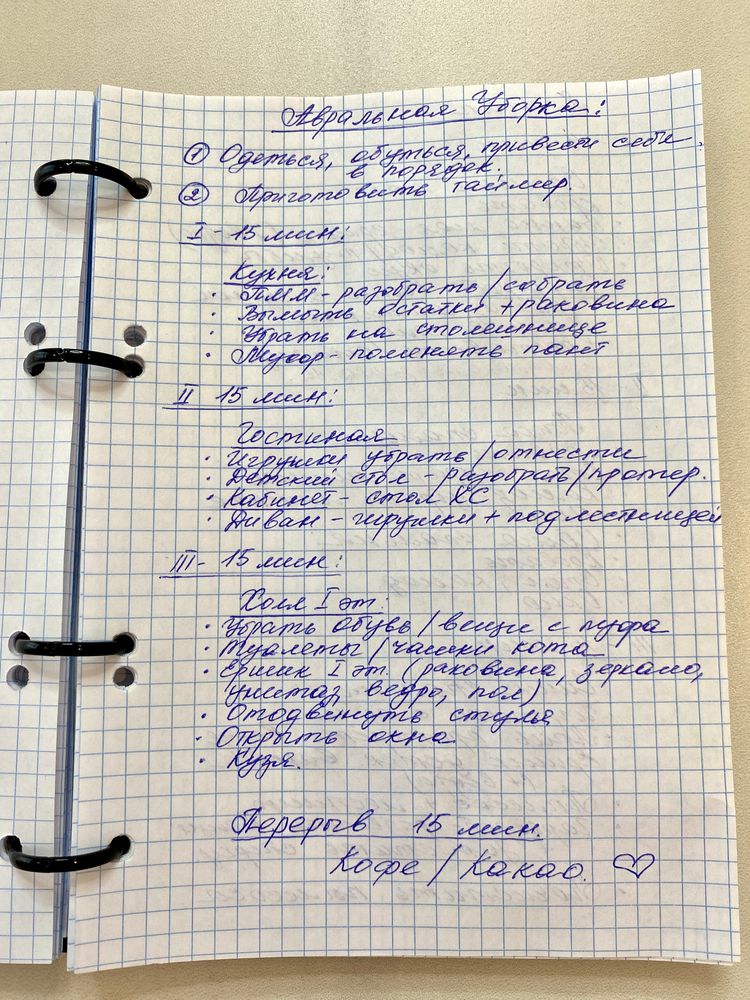 Авральная Уборка:
① Одеться, обуться, привести себя
в порядок.
② Приготовить таймер.
I - 15 мин:
Кухня:
· ПММ - разобрать / собрать
· Вымыть остатки + раковина
· Убрать на столешнице
· Мусор - поменять пакт
II 15 мин:
Гостиная
· Игрушки убрать / отнести
· Детский стол - разобрать / протер.
· Кабинет - стол КС
· Диван - игрушки + под лестницей
III - 15 мин:
Холл I эт:
· Убрать обувь / вещи с пуфа
· Туалеты / чашки кота
· Ёршик I эт (раковина, зеркало,
унитаз, ведро, пол)
· Отодвинуть стулья
· Открыть окна
· Кузя.
Перерыв 15 мин.
Кофе / Какао. ♡